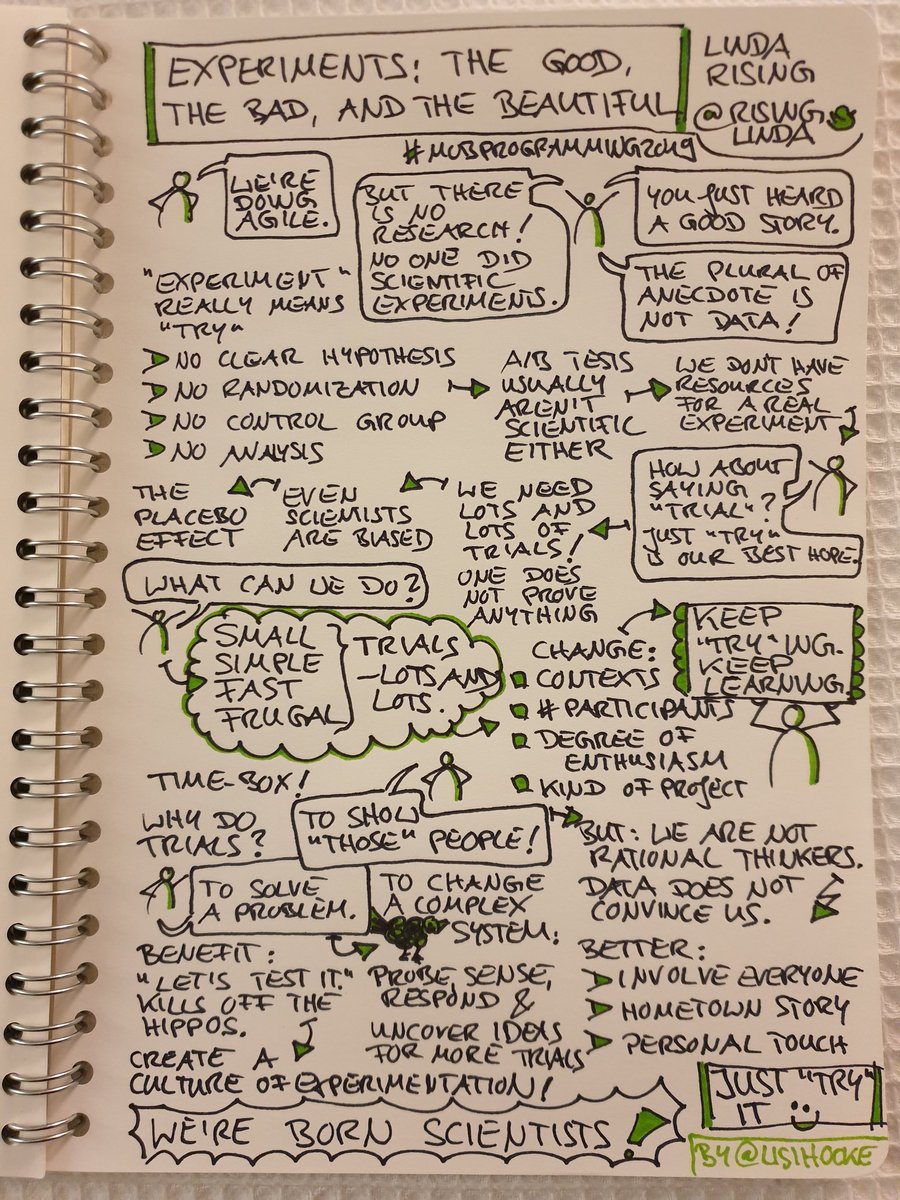 EXPERIMENTS: THE GOOD,
THE BAD, AND THE BEAUTIFUL
LINDA
RISING
@RISING
LINDA
#MOBPROGRAMMING2019
WE'RE
DOING
AGILE.
BUT THERE
IS NO
RESEARCH!
NO ONE DID
SCIENTIFIC
EXPERIMENTS.
YOU JUST HEARD
A GOOD STORY.
THE PLURAL OF
ANECDOTE IS
NOT DATA!
"EXPERIMENT"
REALLY MEANS
"TRY"
NO CLEAR HYPOTHESIS
NO RANDOMIZATION
NO CONTROL GROUP
NO ANALYSIS
A/B TESTS
USUALLY
AREN'T
SCIENTIFIC
EITHER
WE DON'T HAVE
RESOURCES
FOR A REAL
EXPERIMENT
HOW ABOUT
SAYING
"TRIAL"?
JUST "TRY"
IS OUR BEST HOPE.
WE NEED
LOTS AND
LOTS OF
TRIALS!
ONE DOES
NOT PROVE
ANYTHING
EVEN
SCIENTISTS
ARE BIASED
THE
PLACEBO
EFFECT
WHAT CAN WE DO?
SMALL
SIMPLE
FAST
FRUGAL
TRIALS
-LOTS AND
LOTS.
CHANGE:
CONTEXTS
# PARTICIPANTS
DEGREE OF
ENTHUSIASM
KIND OF PROJECT
KEEP
"TRY"ING.
KEEP
LEARNING.
TIME-BOX!
WHY DO
TRIALS?
TO SHOW
"THOSE" PEOPLE!
BUT: WE ARE NOT
RATIONAL THINKERS.
DATA DOES NOT
CONVINCE US.
TO SOLVE
A PROBLEM.
TO CHANGE
A COMPLEX
SYSTEM:
PROBE, SENSE,
RESPOND &
UNCOVER IDEAS
FOR MORE TRIALS
BENEFIT:
"LET'S TEST IT."
KILLS OFF THE
HIPPOS.
CREATE A
CULTURE OF EXPERIMENTATION!
BETTER:
INVOLVE EVERYONE
HOMETOWN STORY
PERSONAL TOUCH
WE'RE BORN SCIENTISTS!
JUST "TRY"
IT
BY @LISIHOCKE